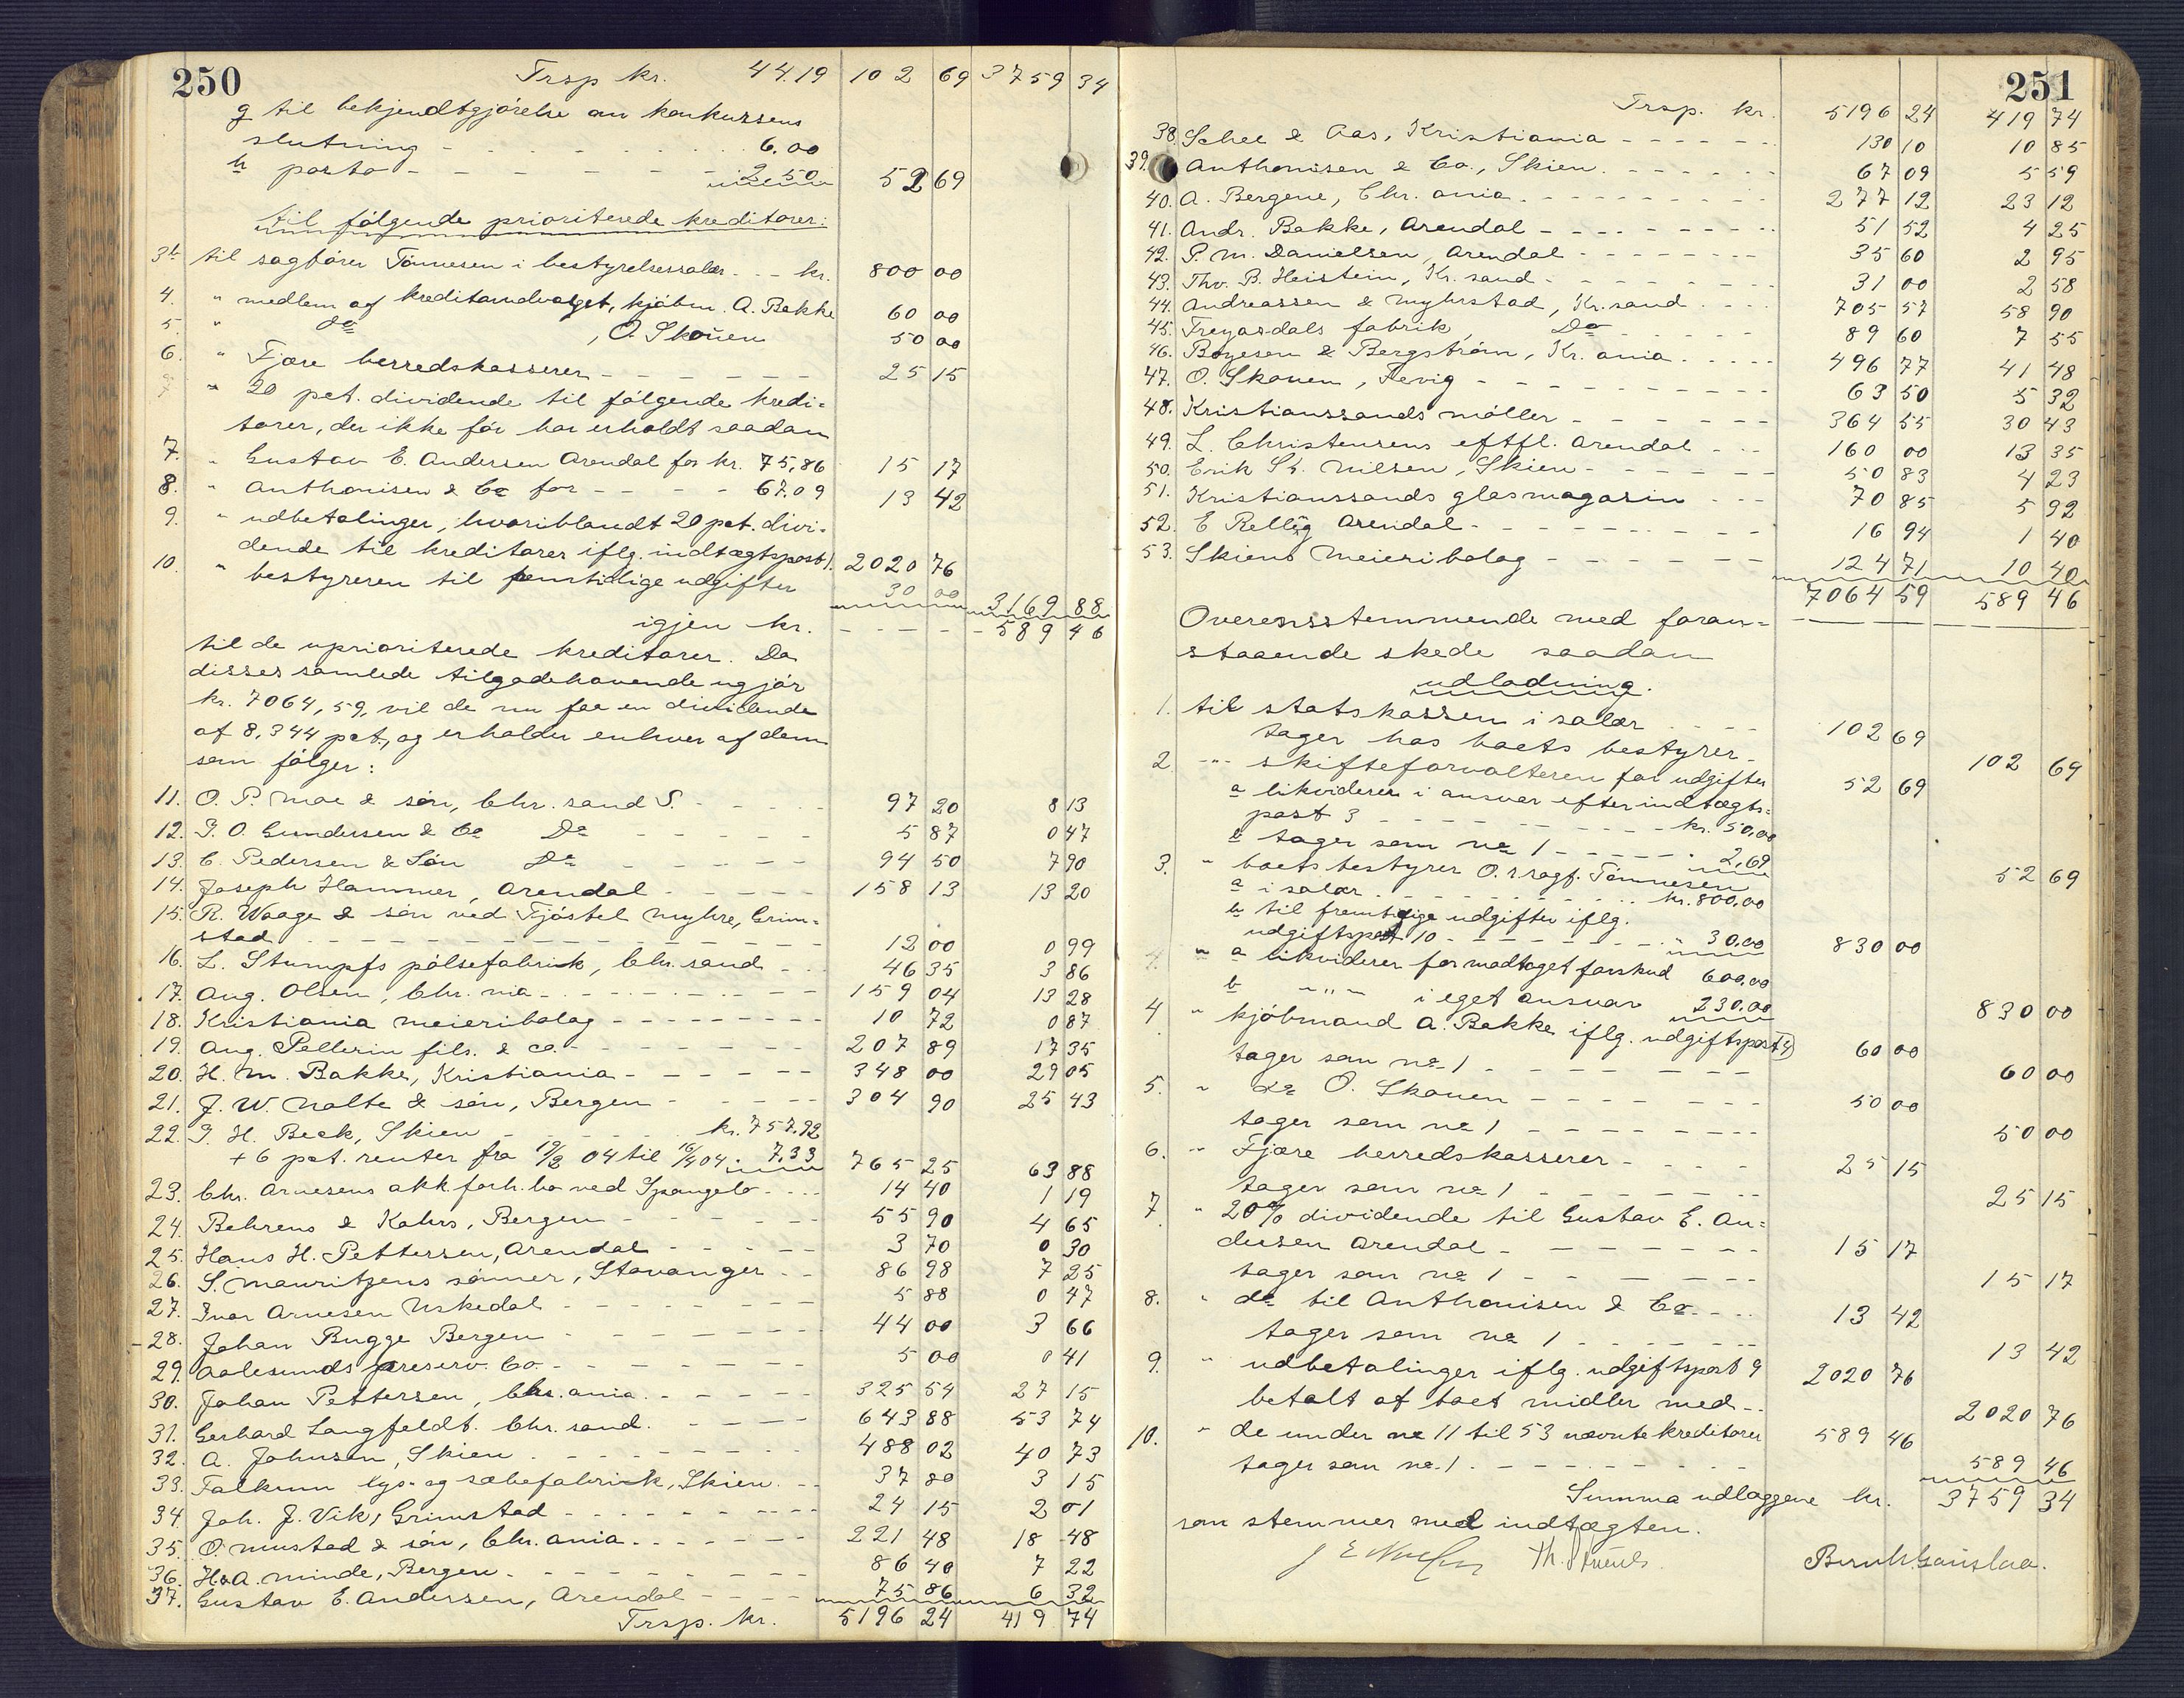 250
Trsp kr. 44.19 102 69 3759 34
g til bekjendtgjörelse om konkursens
slutning - - - 6.00
h porto - - - 2.50 52 69
til følgende prioriterede kreditorer:
3b til sagförer Tönnesen i bestyrelsessalær - - - kr. 800 00
4. " medlem af kreditorudvalget, kjöbm. A. Bakke 60 00
5. " do , O. Skouen 50 00
6. " Fjære herredskasserer - - - 25 15
" 20 pct. dividende til følgende kredi-
torer, der ikke för har erholdt saadan
7. " Gustav E. Andersen Arendal for kr. 75,86 15 17
8. " Anthonisen & Co for - - - 67.09 13 42
9. " udbetalinger, hvoriblandt 20 pct. divi-
dende til kreditorer iflg. indtægtspost 1. 2020 76
10. " bestyreren til fremtidige udgifter 30 00 3169 88
igjen kr. - - - 589 46
til de uprioriterede kreditorer. Da
disses samlede tilgodehavende ugjör
kr. 7064,59, vil de nu faa en dividende
af 8,344 pct., og erholder enhver af dem
som følger:
11. O. P. Moe & sön, Chr. sand S. - - - 97 20 8 13
12. J. O. Gundersen & Co Do - - - 5 87 0 47
13. C. Pedersen & Sön Do - - - 94 50 7 90
14. Joseph Hammer, Arendal - - - 158 13 13 20
15. R. Waage & sön ved Fjöstel Myhre, Grim-
stad - - - 12 00 0 99
16. L. Stumpfs pölsefabrik, Chr. sand - - - 46 35 3 86
17. Aug. Olsen, Chr. nia - - - 159 04 13 28
18. Kristiania meieribolag - - - 10 72 0 87
19. Aug. Pellerin fils. & co. - - - 207 89 17 35
20. H. M. Bakke, Kristiania - - - 348 00 29 05
21. J. W. Nolte & sön, Bergen - - - 304 90 25 43
22. J. H. Beck, Skien - - - kr. 757.92
+ 6 pct. renter fra 19/2 04 til 16/4 04 - 7.33 765 25 63 88
23. Chr. Arnesens akk. forh. bo ved Spangelo - - - 14 40 1 19
24. Behrens & Kahrs, Bergen - - - 55 90 4 65
25. Hans H. Pettersen, Arendal - - - 3 70 0 30
26. S. Mauritzens sönner, Stavanger - - 86 98 7 25
27. Ivar Arnesen Uskedal - - - 5 88 0 47
28. Johan Bugge Bergen - - - 44 00 3 66
29. Aalesunds preserv. Co. - - - 5 00 0 41
30. Johan Pettersen, Chr. ania. - - - 325 54 27 15
31. Gerhard Langfeldt. Chr. sand. - - - 643 88 53 74
32. A. Johnsen, Skien - - - 488 02 40 73
33. Falkum lys- og sæbefabrik, Skien. - - 37 80 3 15
34. Joh. J. Vik, Grimstad - - - 24 15 2 01
35. O. Mustad & sön, Chr. ania. - - - 221 48 18 48
36. H. A. Minde, Bergen. - - - 86 40 7 22
37. Gustav E. Andersen, Arendal - - - 75 86 6 32
Trsp. kr. 5196 24 419 74
251
Trsp. kr. 5196 24 419 74
38. Schee & Aas, Kristiania - - - 130 10 10 85
39. Anthonisen & Co., Skien - - - 67 09 5 59
40. A. Bergene, Chr. ania - - - 277 12 23 12
41. Andr. Bakke, Arendal - - - 51 52 4 25
42. P. M. Danielsen, Arendal - - - 35 60 2 95
43. Thv. B. Heistein, Kr. sand - - - 31 00 2 58
44. Andreassen & Myhrstad, Kr. sand - - - 705 57 58 90
45. Freyasdals fabrik, Do - - - 89 60 7 55
46. Boyesen & Bergström, Kr. ania - - - 496 77 41 48
47. O. Skouen, Fevig - - - 63 50 5 32
48. Kristianssands möller - - - 364 55 30 43
49. L. Christensens eftfl. Arendal - - - 160 00 13 35
50. Erik St. Nilsen, Skien - - - 50 83 4 23
51. Kristianssands glasmagasin - - - 70 85 5 92
52. E Rellig Arendal - - - 16 94 1 40
53. Skiens Meieribolag - - - 124 71 10 40
7064 59 589 46
Overensstemmende med foran-
staaende skede saadan
udlodning.
1. til statskassen i salær - - - 102 69
tager hos boets bestyrer - 102 69
2. - " - skifteforvalteren for udgifter 52 69
a likviderer i ansvar efter indtægts-
post 3 - - - kr. 50,00
b tager som no 1 - - - 2,69 52 69
3. " boets bestyrer O. r. sagf. Tönnesen
a i salær - - - kr. 800,00
b til fremtidige udgifter iflg.
udgiftspost 10 - - - " 30,00 830 00
" a likviderer for modtaget forskud 600,00
b - " - i eget ansvar 230,00 830 00
4 " kjöbmand A. Bakke iflg. udgiftspost 4) 60 00
tager som no 1 - - - 60 00
5. " do O. Skouen - - - 50 00
tager som no 1 - - - 50 00
6. " Fjære herredskasserer - - - 25 15
tager som no 1 - - - 25 15
7. " 20% dividende til Gustav E. An-
dersen Arendal - - - 15 17
tager som no 1 - - - 15 17
8. " do til Anthonisen & Co. - - - 13 42
tager som no 1 - - - 13 42
9. " udbetalinger iflg. udgiftspost 9 2020 76
betalt af boet midler med - - 2020 76
10. " de under no 11 til 53 nævnte kreditorer 589 46
tager som no. 1. - - - 589 46
Summa udlaggene kr. 3759 34
som stemmer med indtægten.